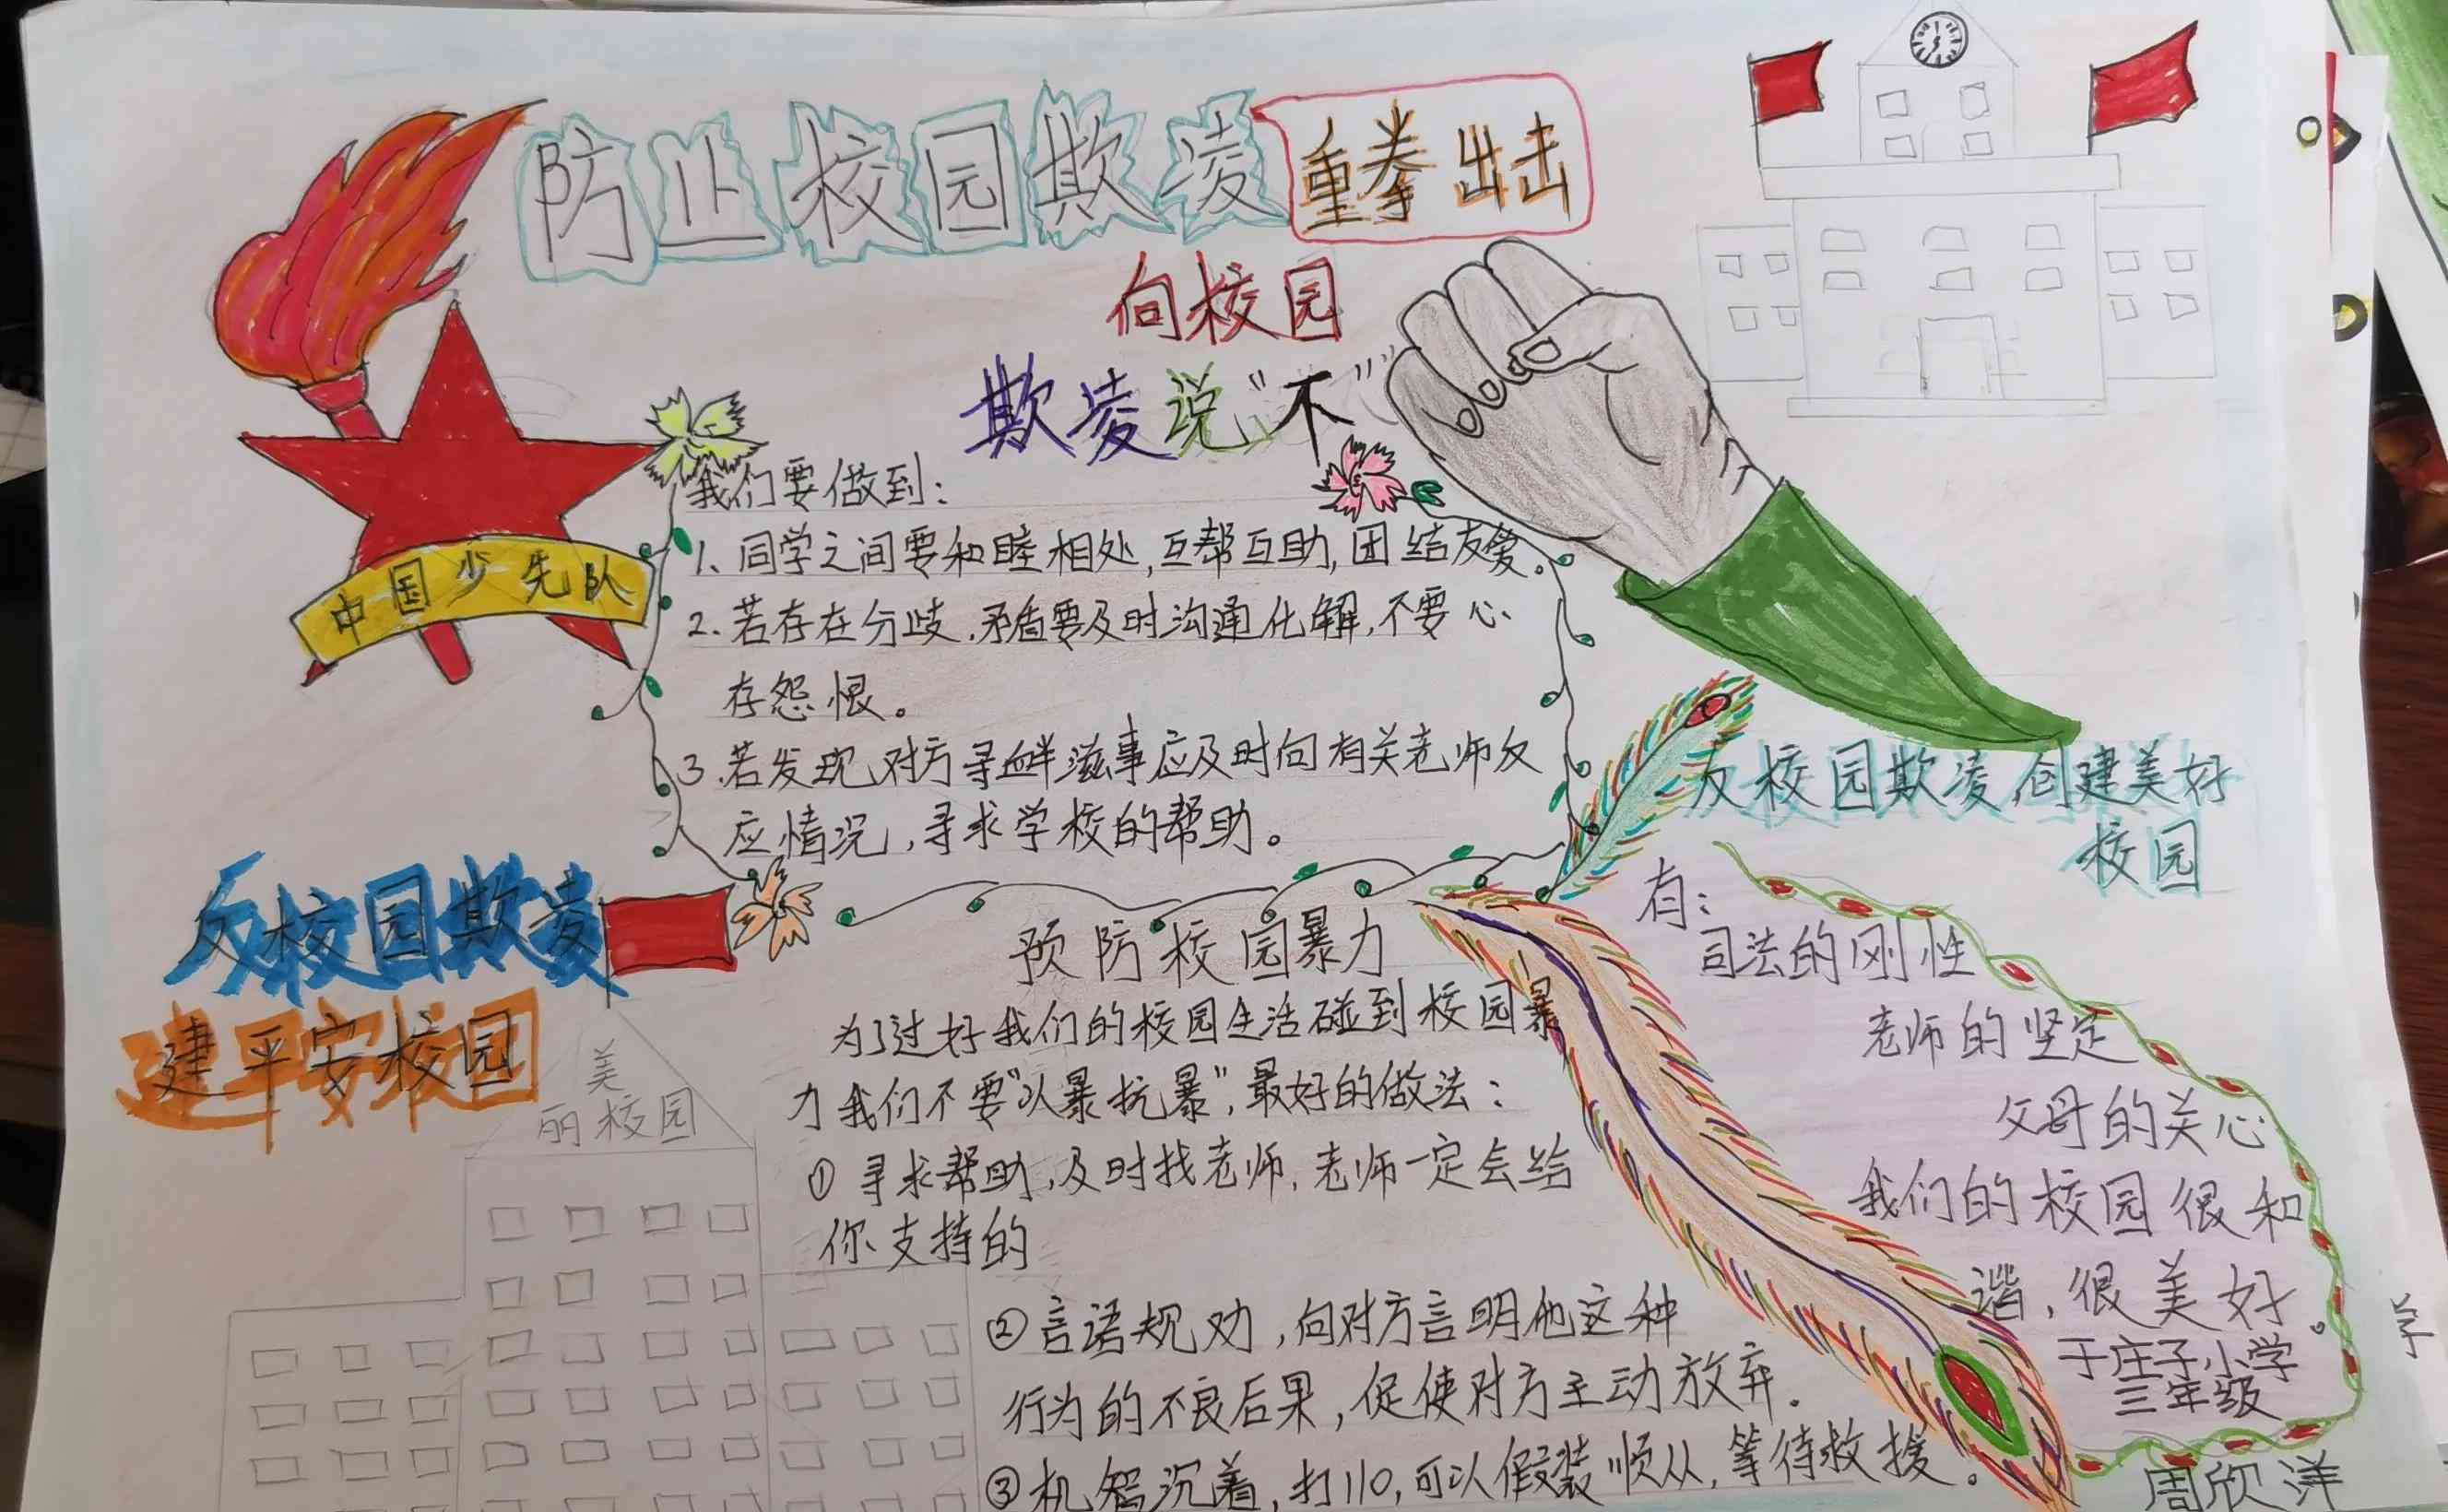 防止校园欺凌
重拳出击
向校园
欺凌说“不”
中国少先队
我们要做到：
1、同学之间要和睦相处,互帮互助,团结友爱。
2.若存在分歧,矛盾要及时沟通化解,不要心
存怨恨。
3.若发现对方寻衅滋事应及时向有关老师反
应情况,寻求学校的帮助。
反校园欺凌
建平安校园
美
丽校园
预防校园暴力
为了过好我们的校园生活碰到校园暴
力我们不要“以暴抗暴”,最好的做法：
①寻求帮助,及时找老师.老师一定会给
你支持的
②言语规劝,向对方言明他这种
行为的不良后果,促使对方主动放弃.
③机智沉着,打110,可以假装顺从,等待救援。
反校园欺凌,创建美好
校园
有：
司法的刚性
老师的坚定
父母的关心
我们的校园很和
谐,很美好。
于庄子小学
三年级
周欣洋